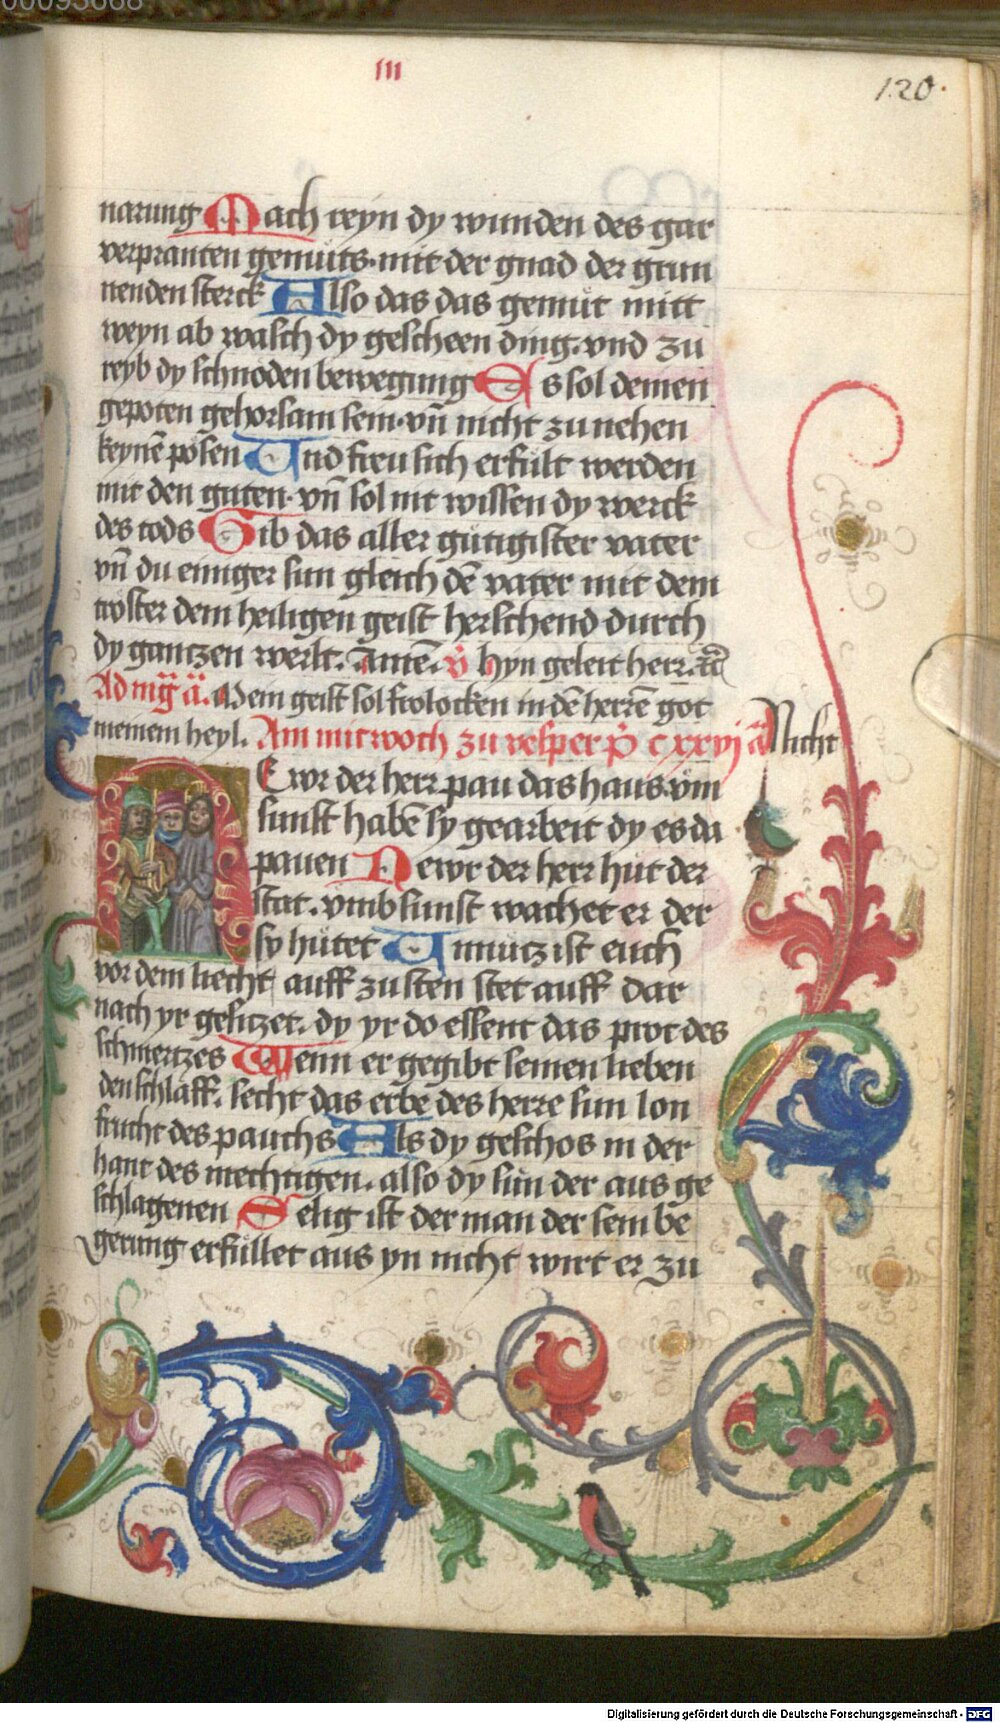 00093668
III
120.
narung Mach reyn dy wunden des gar
verpranten gemüts. mit der gnad der grun
nenden sterck Also das das gemüt mitt
weyn ab wasch dy gescheen ding. vnd zu
reyb dy schnöden bewegung Es sol deinen
gepoten gehorsam sein. vn̄ nicht zu nehen
keynē pösen Und freu sich erfült werden
mit den guten. vn̄ sol nit wissen dy werck
des tods Gib das aller gütigister vater
vn̄ du einiger sun gleich dē vater mit dem
troster dem heiligen geist herschend durch
dy gantzen werlt. Amē. v̄ hyn geleit herr. ꝛc̄
Ad mg̅ a̅. Mein geist sol frolocken in dē herrē got
meinem heyl. Am mitwoch zu vesper p̄s cxxvj ā Nicht
Ewr der herr pau das haus. vm
sunst habē sy gearbeit dy es da
pauen Newr der herr hut der
stat. vmb sunst wachet er der
sy hütet Unnutz ist euch
vor dem liecht auff zu sten stet auff dar
nach yr gesitzet. dy yr do essent das prot des
schmertzes Wenn er gegibt seinen lieben
den schlaff. secht das erbe des herrē sun lon
frucht des pauchs Als dy geschos in der
hant des mechtigen. also dy sün der aus ge
schlagenen Selig ist der man der sein be
gerung erfüllet aus yn nicht wirt er zu
Digitalisierung gefördert durch die Deutsche Forschungsgemeinschaft - DFG